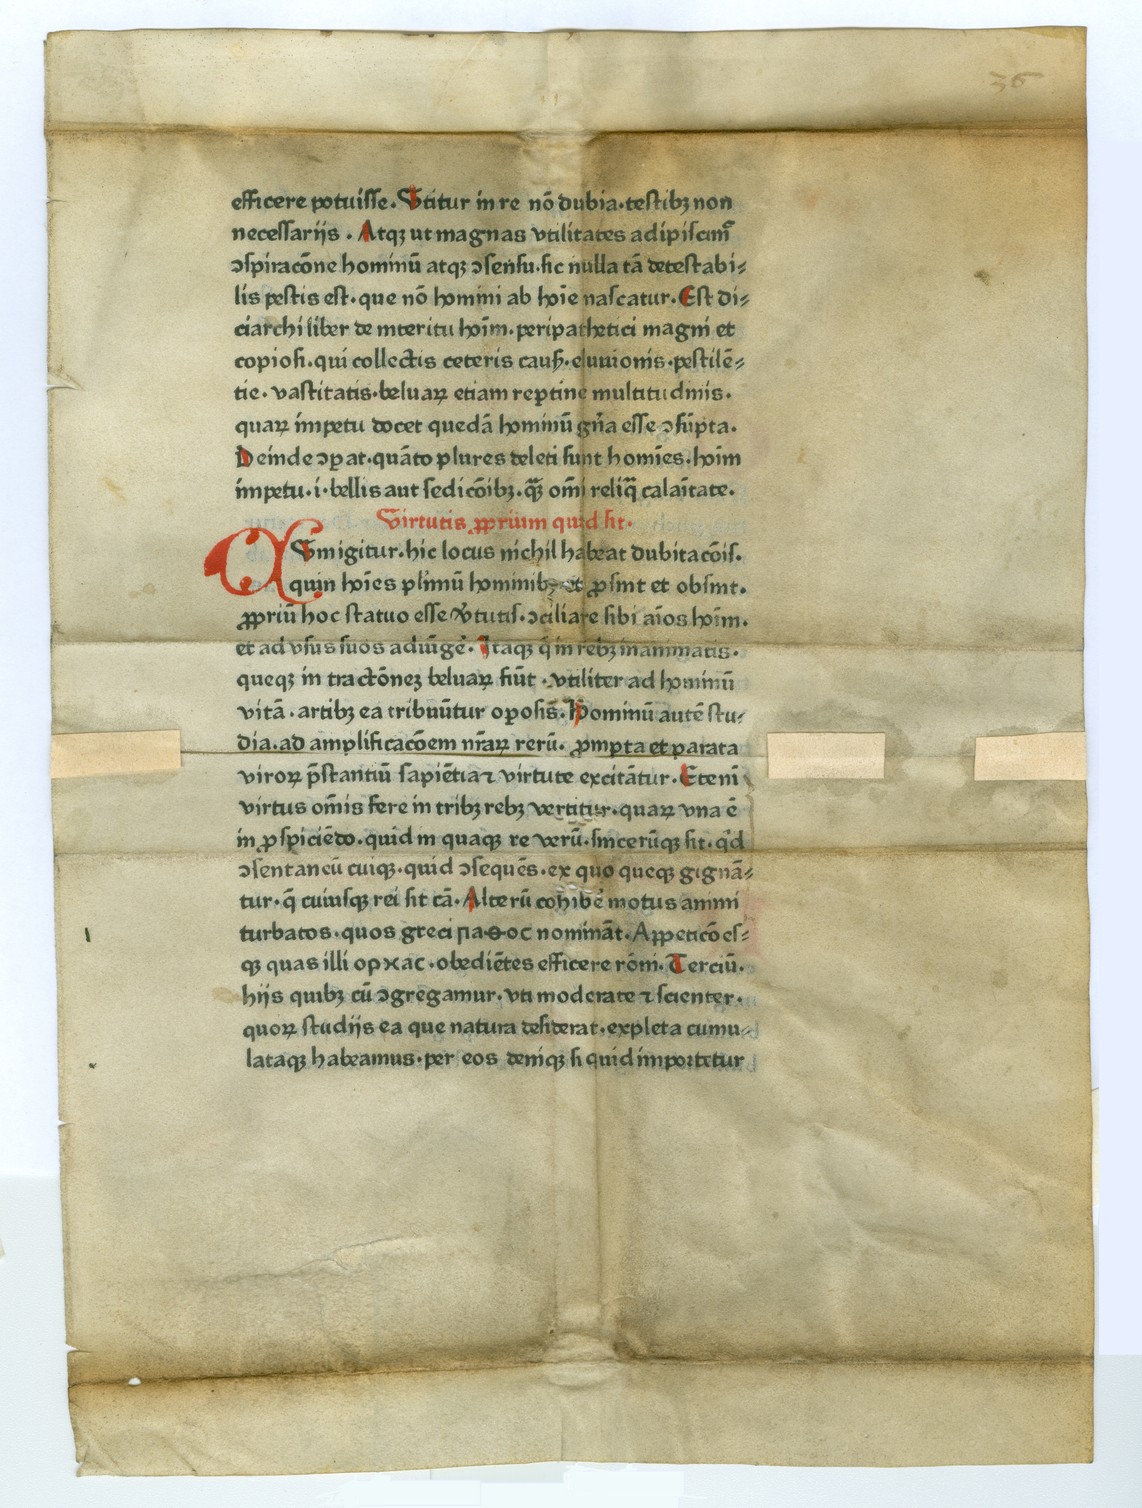 36
efficere potuisse. Vtitur in re nō dubia·testibꝫ non
necessarijs . Atqꝫ ut magnas vtilitates adipiscim̄
ↄspiracōne hominū atqꝫ ↄsensu·sic nulla tā detestabi⸗
lis pestis est·que nō homini ab hoīe nascatur. Est di⸗
ciarchi liber de interitu hoīm·peripathetici magni et
copiosi·qui collectis ceteris causꝭ·eluuionis·pestilē⸗
tie·vastitatis·beluaꝝ etiam repntine multitudinis·
quaꝝ impetu docet quedā hominū gn̄a esse ↄsūpta.
Deinde ↄꝑat·quāto plures deleti sunt homīes·hoīm
impetu·i·bellis aut sedicōibꝫ·qꝫ̄ om̄i reliq̄ calaītate.
Virtutis ꝓprium quid sit·
QVm igitur·hic locus nichil habeat dubitacōis·
quin hoīes pl̄imū hominibꝫ et ꝓsint et obsint·
ꝓpriū hoc statuo esse v̓tutis·ↄciliare sibi aīos hoīm·
et ad vsus suos adiūgē· Itaqꝫ q̄ in rebꝫ inanimatis·
queqꝫ in tractōneꝫ beluaꝝ fiūt ·vtiliter ad hominū
vitā·artibꝫ ea tribnūtur oꝑosis̄. Hominū autē stu⸗
dia·ad amplificacōem nr̄aꝝ rerū· ꝓmpta et parata
viroꝝ p̄stantiū sapiētia ⁊ virtute excitātur. Etenī
virtus om̄is fere in tribꝫ rebꝫ vertitur·quaꝝ vna ē
in ꝓspiciēdo·quid in quaqꝫ re verū·sincerūqꝫ sit·qd̓
ↄsentaneū cuiqꝫ·quid ↄsequēs·ex quo queqꝫ gignā⸗
tur·q̄ cuiusqꝫ rei sit cā· Alterū cohibē motus animi
turbatos·quos greci παθος nomināt. Appeticōes⸗
qꝫ quas illi ορχας·obediētes efficere rōni. Terciū·
hijs quibꝫ cū ↄgregamur·vti moderate ⁊ scienter·
quoꝝ studijs ea que natura desiderat·expleta cumu⸗
lataqꝫ habeamus·per eos deniqꝫ si quid importetur